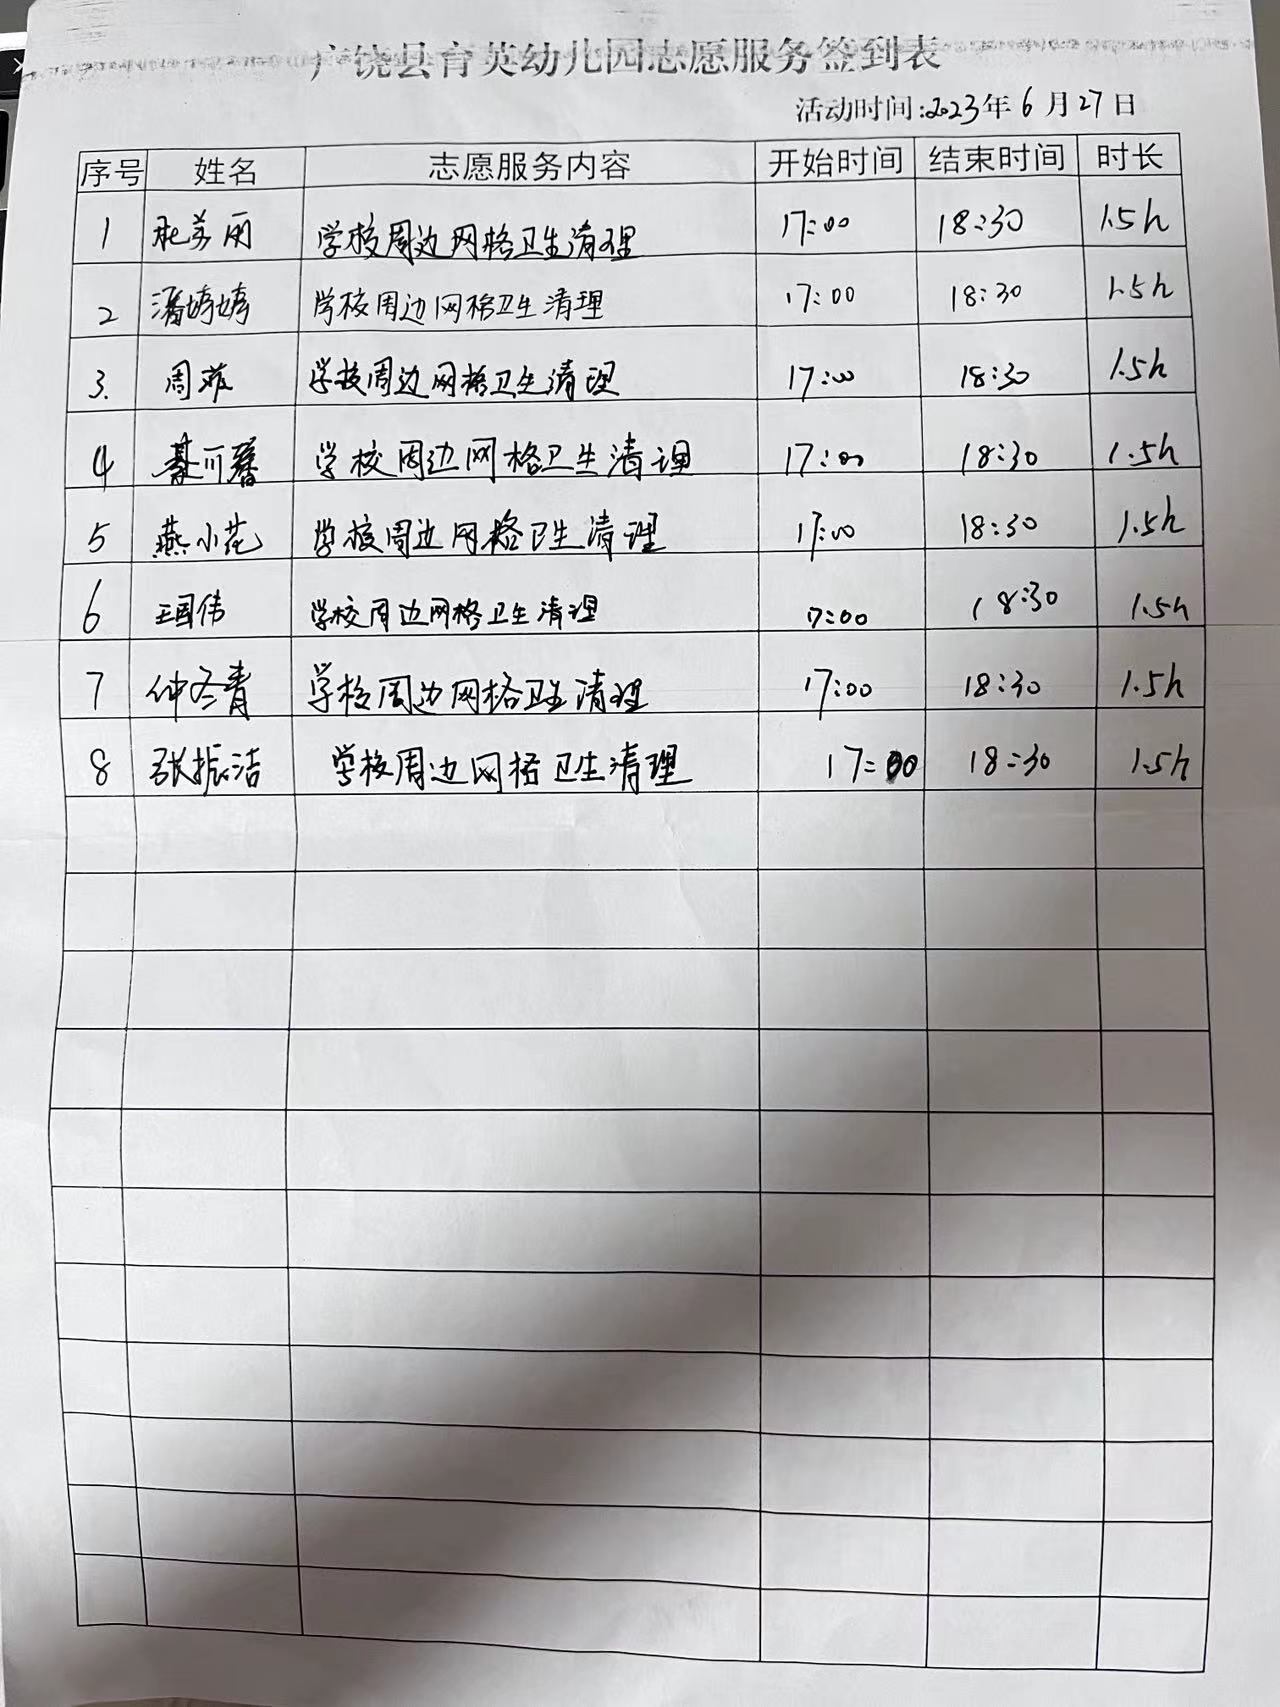 广饶县育英幼儿园志愿服务签到表
活动时间:2023年6月27日
序号 姓名 志愿服务内容 开始时间 结束时间 时长
1 杜美丽 学校周边网格卫生清理 17:00 18:30 1.5h
2 潘婷婷 学校周边网格卫生清理 17:00 18:30 1.5h
3. 周菲 学校周边网格卫生清理 17:00 18:30 1.5h
4 綦可馨 学校周边网格卫生清理 17:00 18:30 1.5h
5 燕小花 学校周边网格卫生清理 17:00 18:30 1.5h
6 王国伟 学校周边网格卫生清理 17:00 18:30 1.5h
7 仲冬青 学校周边网格卫生清理 17:00 18:30 1.5h
8 张振洁 学校周边网格卫生清理 17:00 18:30 1.5h